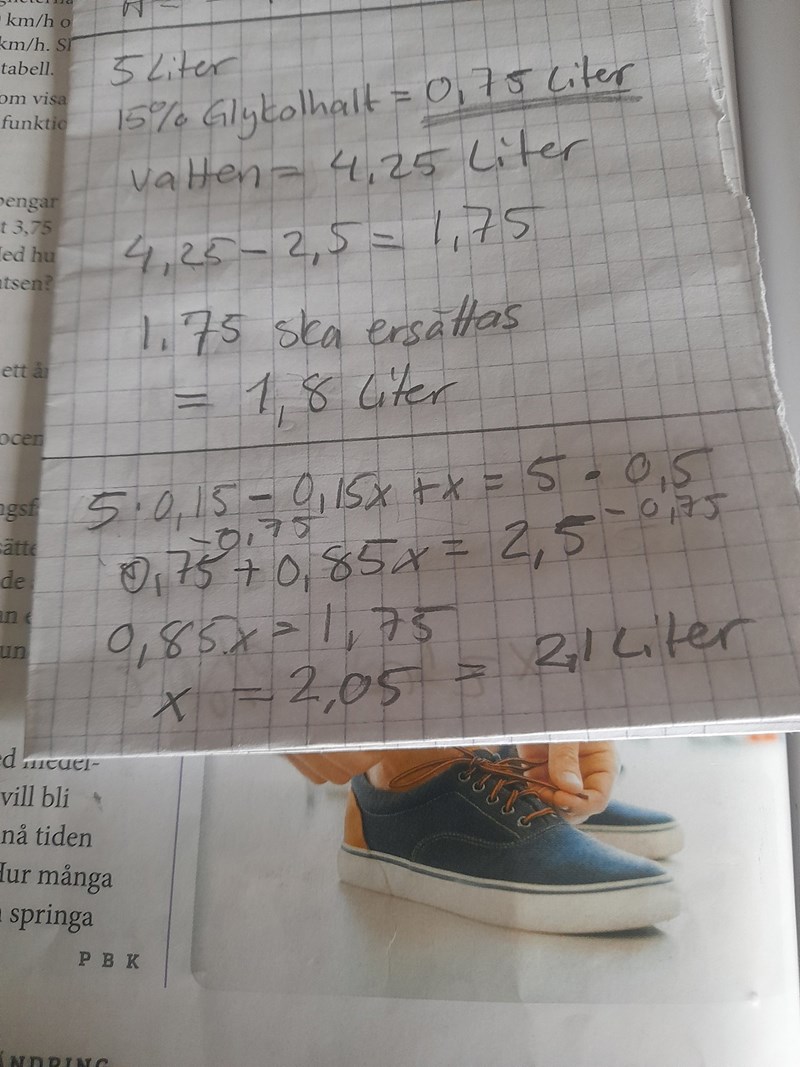 km/h o
km/h. Sl
tabell.
om visa
funktio
pengar
t 3,75
led hu
utsen?
ett år
ocen
ngsf
sätte
de
un
5 Liter
15% Glykolhalt = 0,75 Liter
vatten = 4,25 Liter
4,25 - 2,5 = 1,75
1.75 ska ersättas
= 1,8 Liter
5 · 0,15 - 0,15x + x = 5 · 0,5
-0,75 - 0,75
0,75 + 0,85x = 2,5
0,85x = 1,75
x = 2,05 = 2,1 Liter
ed medel-
vill bli
nå tiden
Hur många
springa
PBK
ÄNDRING